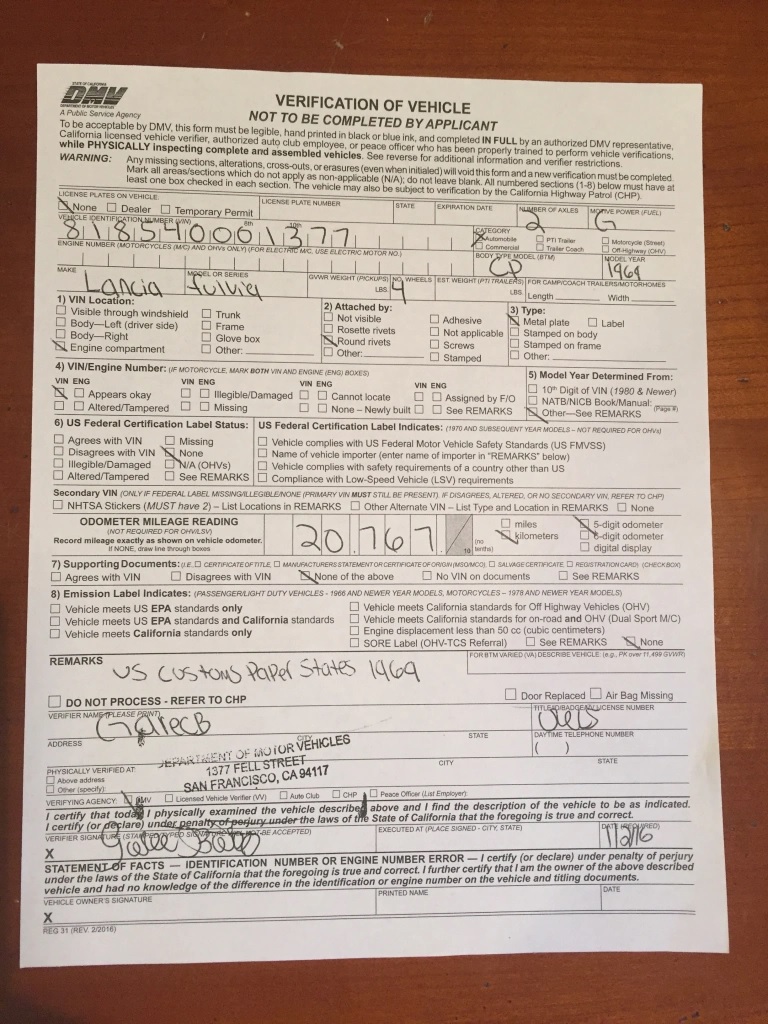 STATE OF CALIFORNIA
DMV
DEPARTMENT OF MOTOR VEHICLES
A Public Service Agency
VERIFICATION OF VEHICLE
NOT TO BE COMPLETED BY APPLICANT
To be acceptable by DMV, this form must be legible, hand printed in black or blue ink, and completed IN FULL by an authorized DMV representative,
California licensed vehicle verifier, authorized auto club employee, or peace officer who has been properly trained to perform vehicle verifications,
while PHYSICALLY inspecting complete and assembled vehicles. See reverse for additional information and verifier restrictions.
WARNING: Any missing sections, alterations, cross-outs, or erasures (even when initialed) will void this form and a new verification must be completed.
Mark all areas/sections which do not apply as non-applicable (N/A); do not leave blank. All numbered sections (1-8) below must have at
least one box checked in each section. The vehicle may also be subject to verification by the California Highway Patrol (CHP).
LICENSE PLATES ON VEHICLE: LICENSE PLATE NUMBER STATE EXPIRATION DATE NUMBER OF AXLES MOTIVE POWER (FUEL)
None Dealer Temporary Permit 2 G
VEHICLE IDENTIFICATION NUMBER (VIN) 8th 10th CATEGORY
818540001377 Automobile PTI Trailer Motorcycle (Street)
Commercial Trailer Coach Off-Highway (OHV)
ENGINE NUMBER (MOTORCYCLES (M/C) AND OHVS ONLY) (FOR ELECTRIC M/C, USE ELECTRIC MOTOR NO.) BODY TYPE MODEL (BTM) MODEL YEAR
CP 1969
MAKE MODEL OR SERIES GVWR WEIGHT (PICKUPS) NO. WHEELS EST. WEIGHT (PTI TRAILERS) FOR CAMP/COACH TRAILERS/MOTORHOMES
Lancia fulvia LBS. 4 LBS. Length Width
1) VIN Location: 2) Attached by: 3) Type:
Visible through windshield Trunk Not visible Adhesive Metal plate Label
Body—Left (driver side) Frame Rosette rivets Not applicable Stamped on body
Body—Right Glove box Round rivets Screws Stamped on frame
Engine compartment Other: Other: Stamped Other:
4) VIN/Engine Number: (IF MOTORCYCLE, MARK BOTH VIN AND ENGINE (ENG) BOXES) 5) Model Year Determined From:
VIN ENG VIN ENG VIN ENG VIN ENG 10th Digit of VIN (1980 & Newer)
Appears okay Illegible/Damaged Cannot locate Assigned by F/O NATB/NICB Book/Manual: (Page #)
Altered/Tampered Missing None – Newly built See REMARKS Other—See REMARKS
6) US Federal Certification Label Status: US Federal Certification Label Indicates: (1970 AND SUBSEQUENT YEAR MODELS – NOT REQUIRED FOR OHVs)
Agrees with VIN Missing Vehicle complies with US Federal Motor Vehicle Safety Standards (US FMVSS)
Disagrees with VIN None Name of vehicle importer (enter name of importer in "REMARKS" below)
Illegible/Damaged N/A (OHVs) Vehicle complies with safety requirements of a country other than US
Altered/Tampered See REMARKS Compliance with Low-Speed Vehicle (LSV) requirements
Secondary VIN (ONLY IF FEDERAL LABEL MISSING/ILLEGIBLE/NONE (PRIMARY VIN MUST STILL BE PRESENT). IF DISAGREES, ALTERED, OR NO SECONDARY VIN, REFER TO CHP)
NHTSA Stickers (MUST have 2) – List Locations in REMARKS Other Alternate VIN – List Type and Location in REMARKS None
ODOMETER MILEAGE READING
(NOT REQUIRED FOR OHV/LSV)
Record mileage exactly as shown on vehicle odometer.
If NONE, draw line through boxes
20,767 10 (no tenths)
miles 5-digit odometer
kilometers 6-digit odometer
digital display
7) Supporting Documents: (I.E. CERTIFICATE OF TITLE, MANUFACTURERS STATEMENT OR CERTIFICATE OF ORIGIN (MSO/MCO), SALVAGE CERTIFICATE, REGISTRATION CARD) (CHECK BOX)
Agrees with VIN Disagrees with VIN None of the above No VIN on documents See REMARKS
8) Emission Label Indicates: (PASSENGER/LIGHT DUTY VEHICLES - 1966 AND NEWER YEAR MODELS, MOTORCYCLES – 1978 AND NEWER YEAR MODELS)
Vehicle meets US EPA standards only Vehicle meets California standards for Off Highway Vehicles (OHV)
Vehicle meets US EPA and California standards Vehicle meets California standards for on-road and OHV (Dual Sport M/C)
Vehicle meets California standards only Engine displacement less than 50 cc (cubic centimeters)
SORE Label (OHV-TCS Referral) See REMARKS None
REMARKS FOR BTM VARIED (VA) DESCRIBE VEHICLE: (e.g., PK over 11,499 GVWR)
US Customs Paper States 1969
DO NOT PROCESS - REFER TO CHP Door Replaced Air Bag Missing
VERIFIER NAME (PLEASE PRINT) TITLE/ID/BADGE/VV LICENSE NUMBER
ADDRESS CITY STATE DAYTIME TELEPHONE NUMBER
( )
DEPARTMENT OF MOTOR VEHICLES
1377 FELL STREET
SAN FRANCISCO, CA 94117
PHYSICALLY VERIFIED AT: CITY STATE
Above address
Other (specify):
VERIFYING AGENCY: DMV Licensed Vehicle Verifier (VV) Auto Club CHP Peace Officer (List Employer):
I certify that today I physically examined the vehicle described above and I find the description of the vehicle to be as indicated.
I certify (or declare) under penalty of perjury under the laws of the State of California that the foregoing is true and correct.
VERIFIER SIGNATURE (STAMPED/TYPED SIGNATURE WILL NOT BE ACCEPTED) EXECUTED AT (PLACE SIGNED - CITY, STATE) DATE (REQUIRED)
X
STATEMENT OF FACTS — IDENTIFICATION NUMBER OR ENGINE NUMBER ERROR — I certify (or declare) under penalty of perjury
under the laws of the State of California that the foregoing is true and correct. I further certify that I am the owner of the above described
vehicle and had no knowledge of the difference in the identification or engine number on the vehicle and titling documents.
VEHICLE OWNER'S SIGNATURE PRINTED NAME DATE
X
REG 31 (REV. 2/2016)